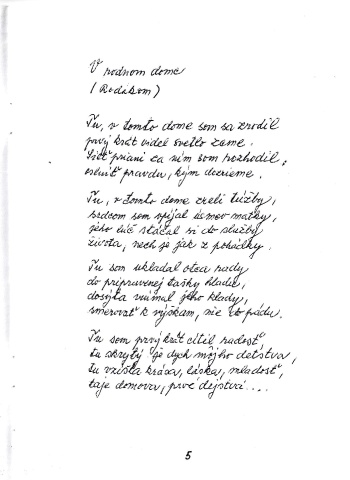 V rodnom dome
(Rodákom)
Tu, v tomto dome som sa zrodil
prvý krát videl svetlo zeme.
Sieť prianí za ním som rozhodil,
osloviť pravdu, kým drieme.
Tu, v tomto dome zreli túžby,
srdcom som spíjal úsmev matky,
jeho lúč stáčal si do služby
života, nech je jak z pohádky.
Tu som ukladal otca rady
do pripravenej tašky hladu,
dosýta vnímal jeho klady,
smerovať k výškam, nie do pádu.
Tu som prvý krát cítil radosť
tu skrytý je dych môjho detstva,
tu vzišla krása, láska, mladosť,
taje domova, prvé dejstvá ...
5